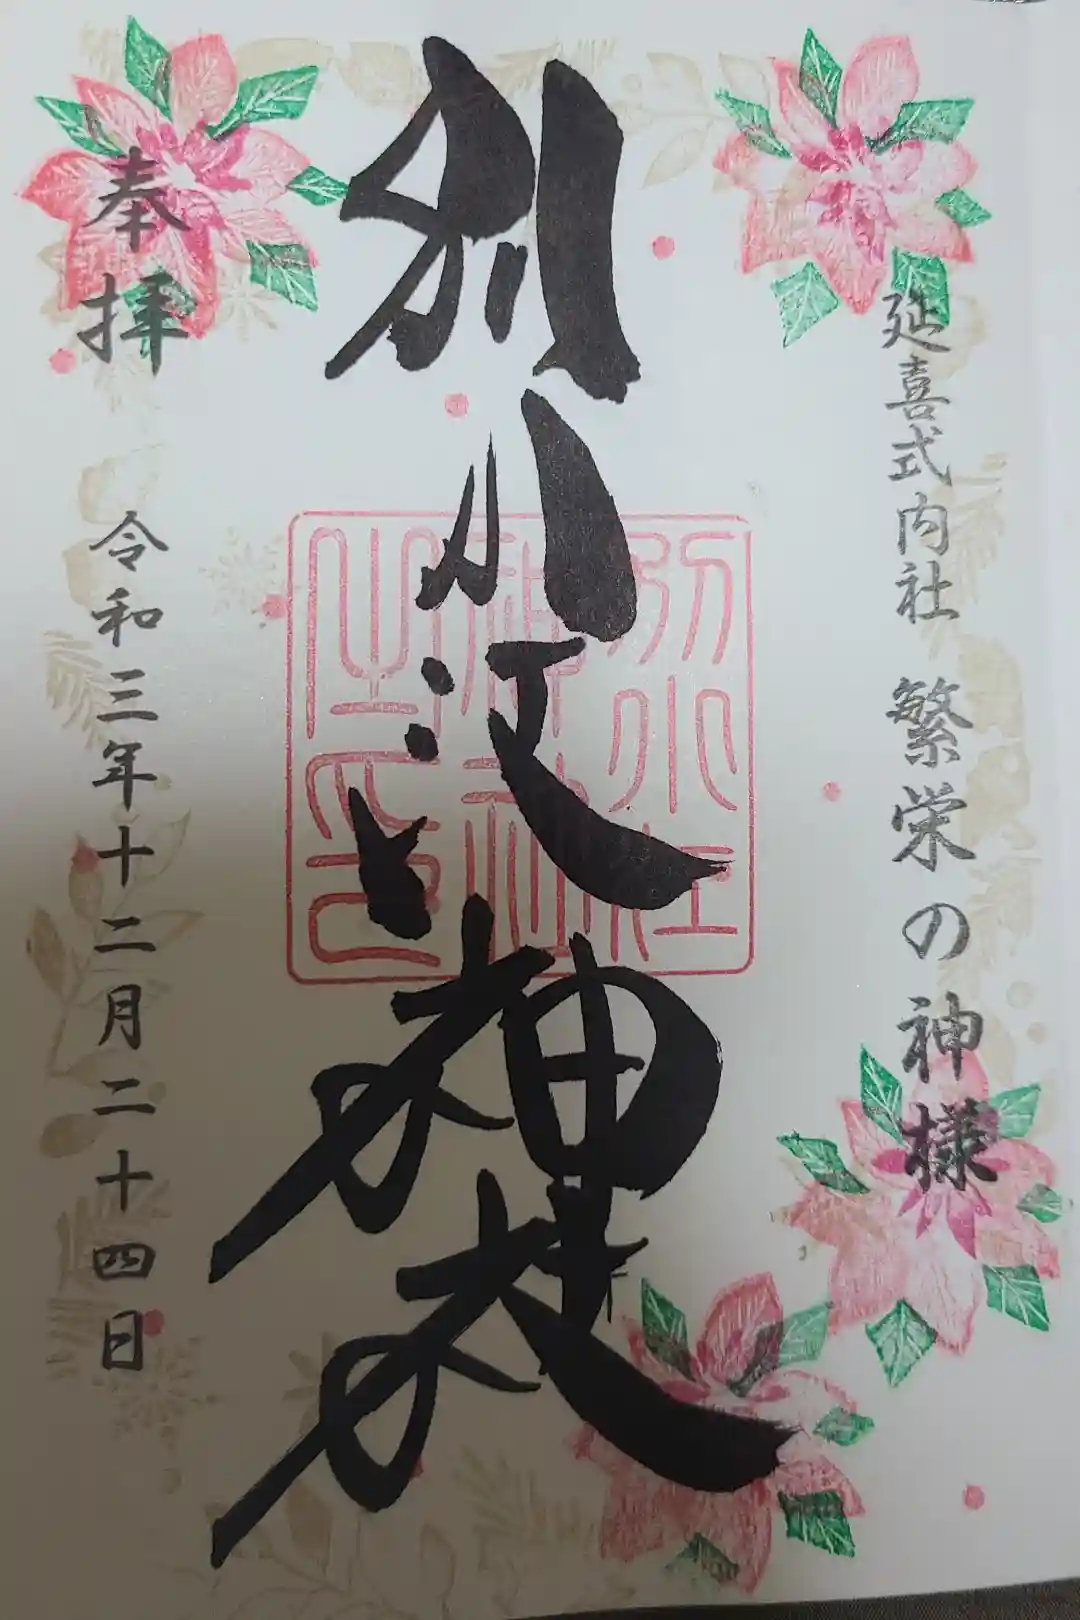 延喜式内社 繁栄の神様
別小江神社
別小江
神社
之神璽
奉拝
令和三年十二月二十四日